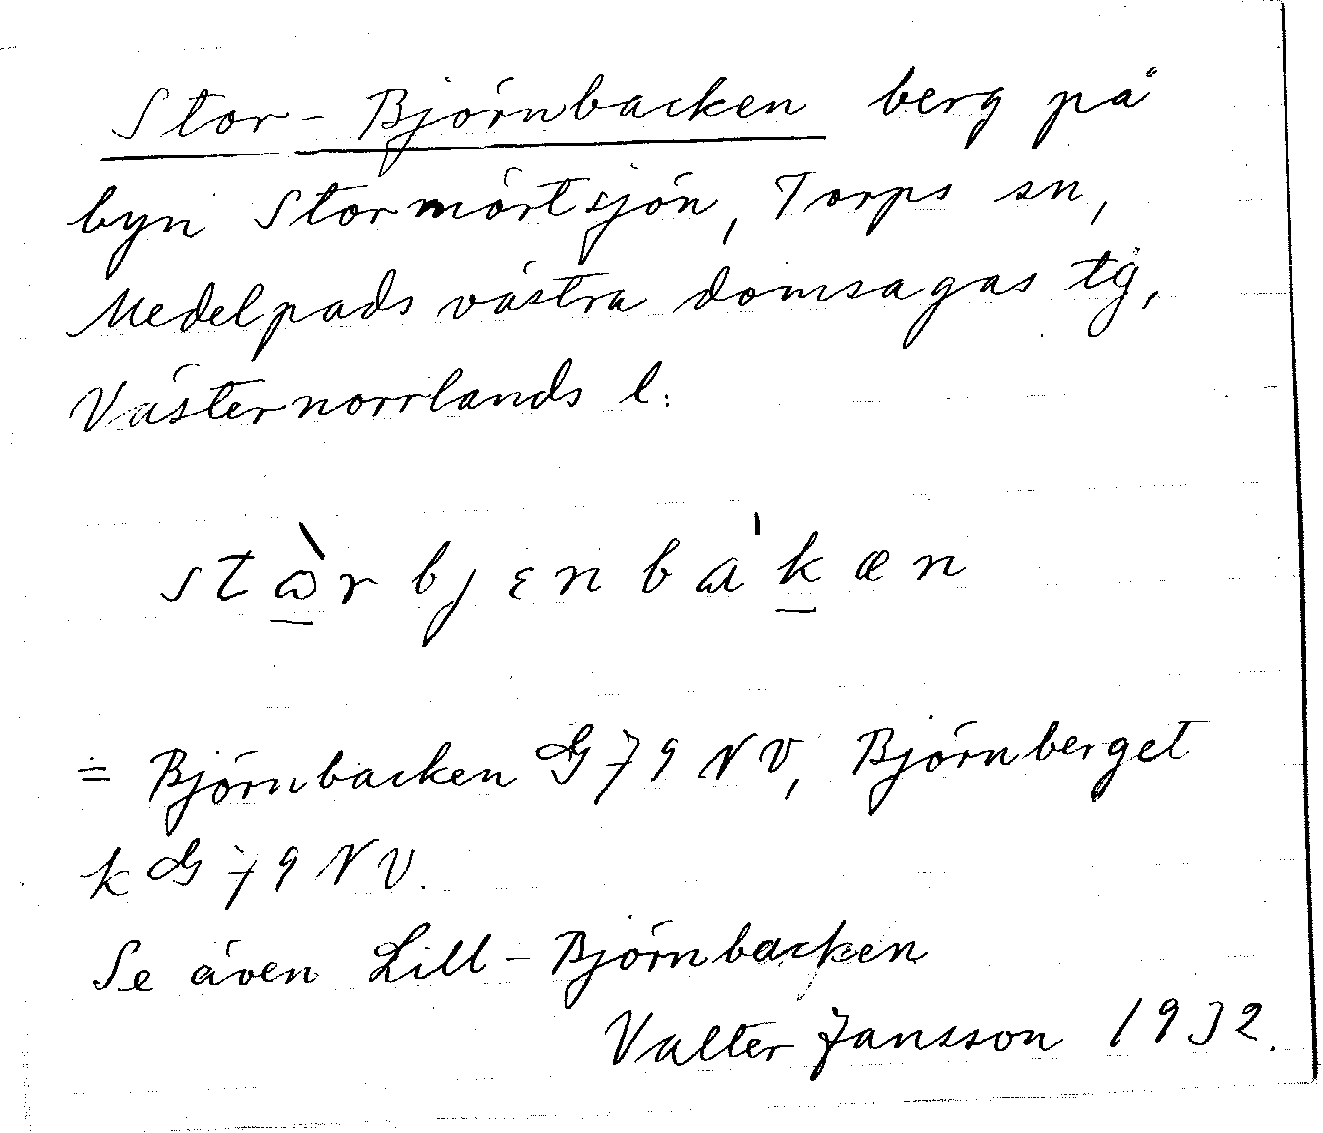 Stor-Björnbacken berg på
byn Stormörtsjön, Torps sn,
Medelpads västra domsagas tg,
Västernorrlands l.
= Björnbacken G 79 NV, Björnberget
k G 79 NV.
Se även Lill-Björnbacken
Valter Jansson 1932.